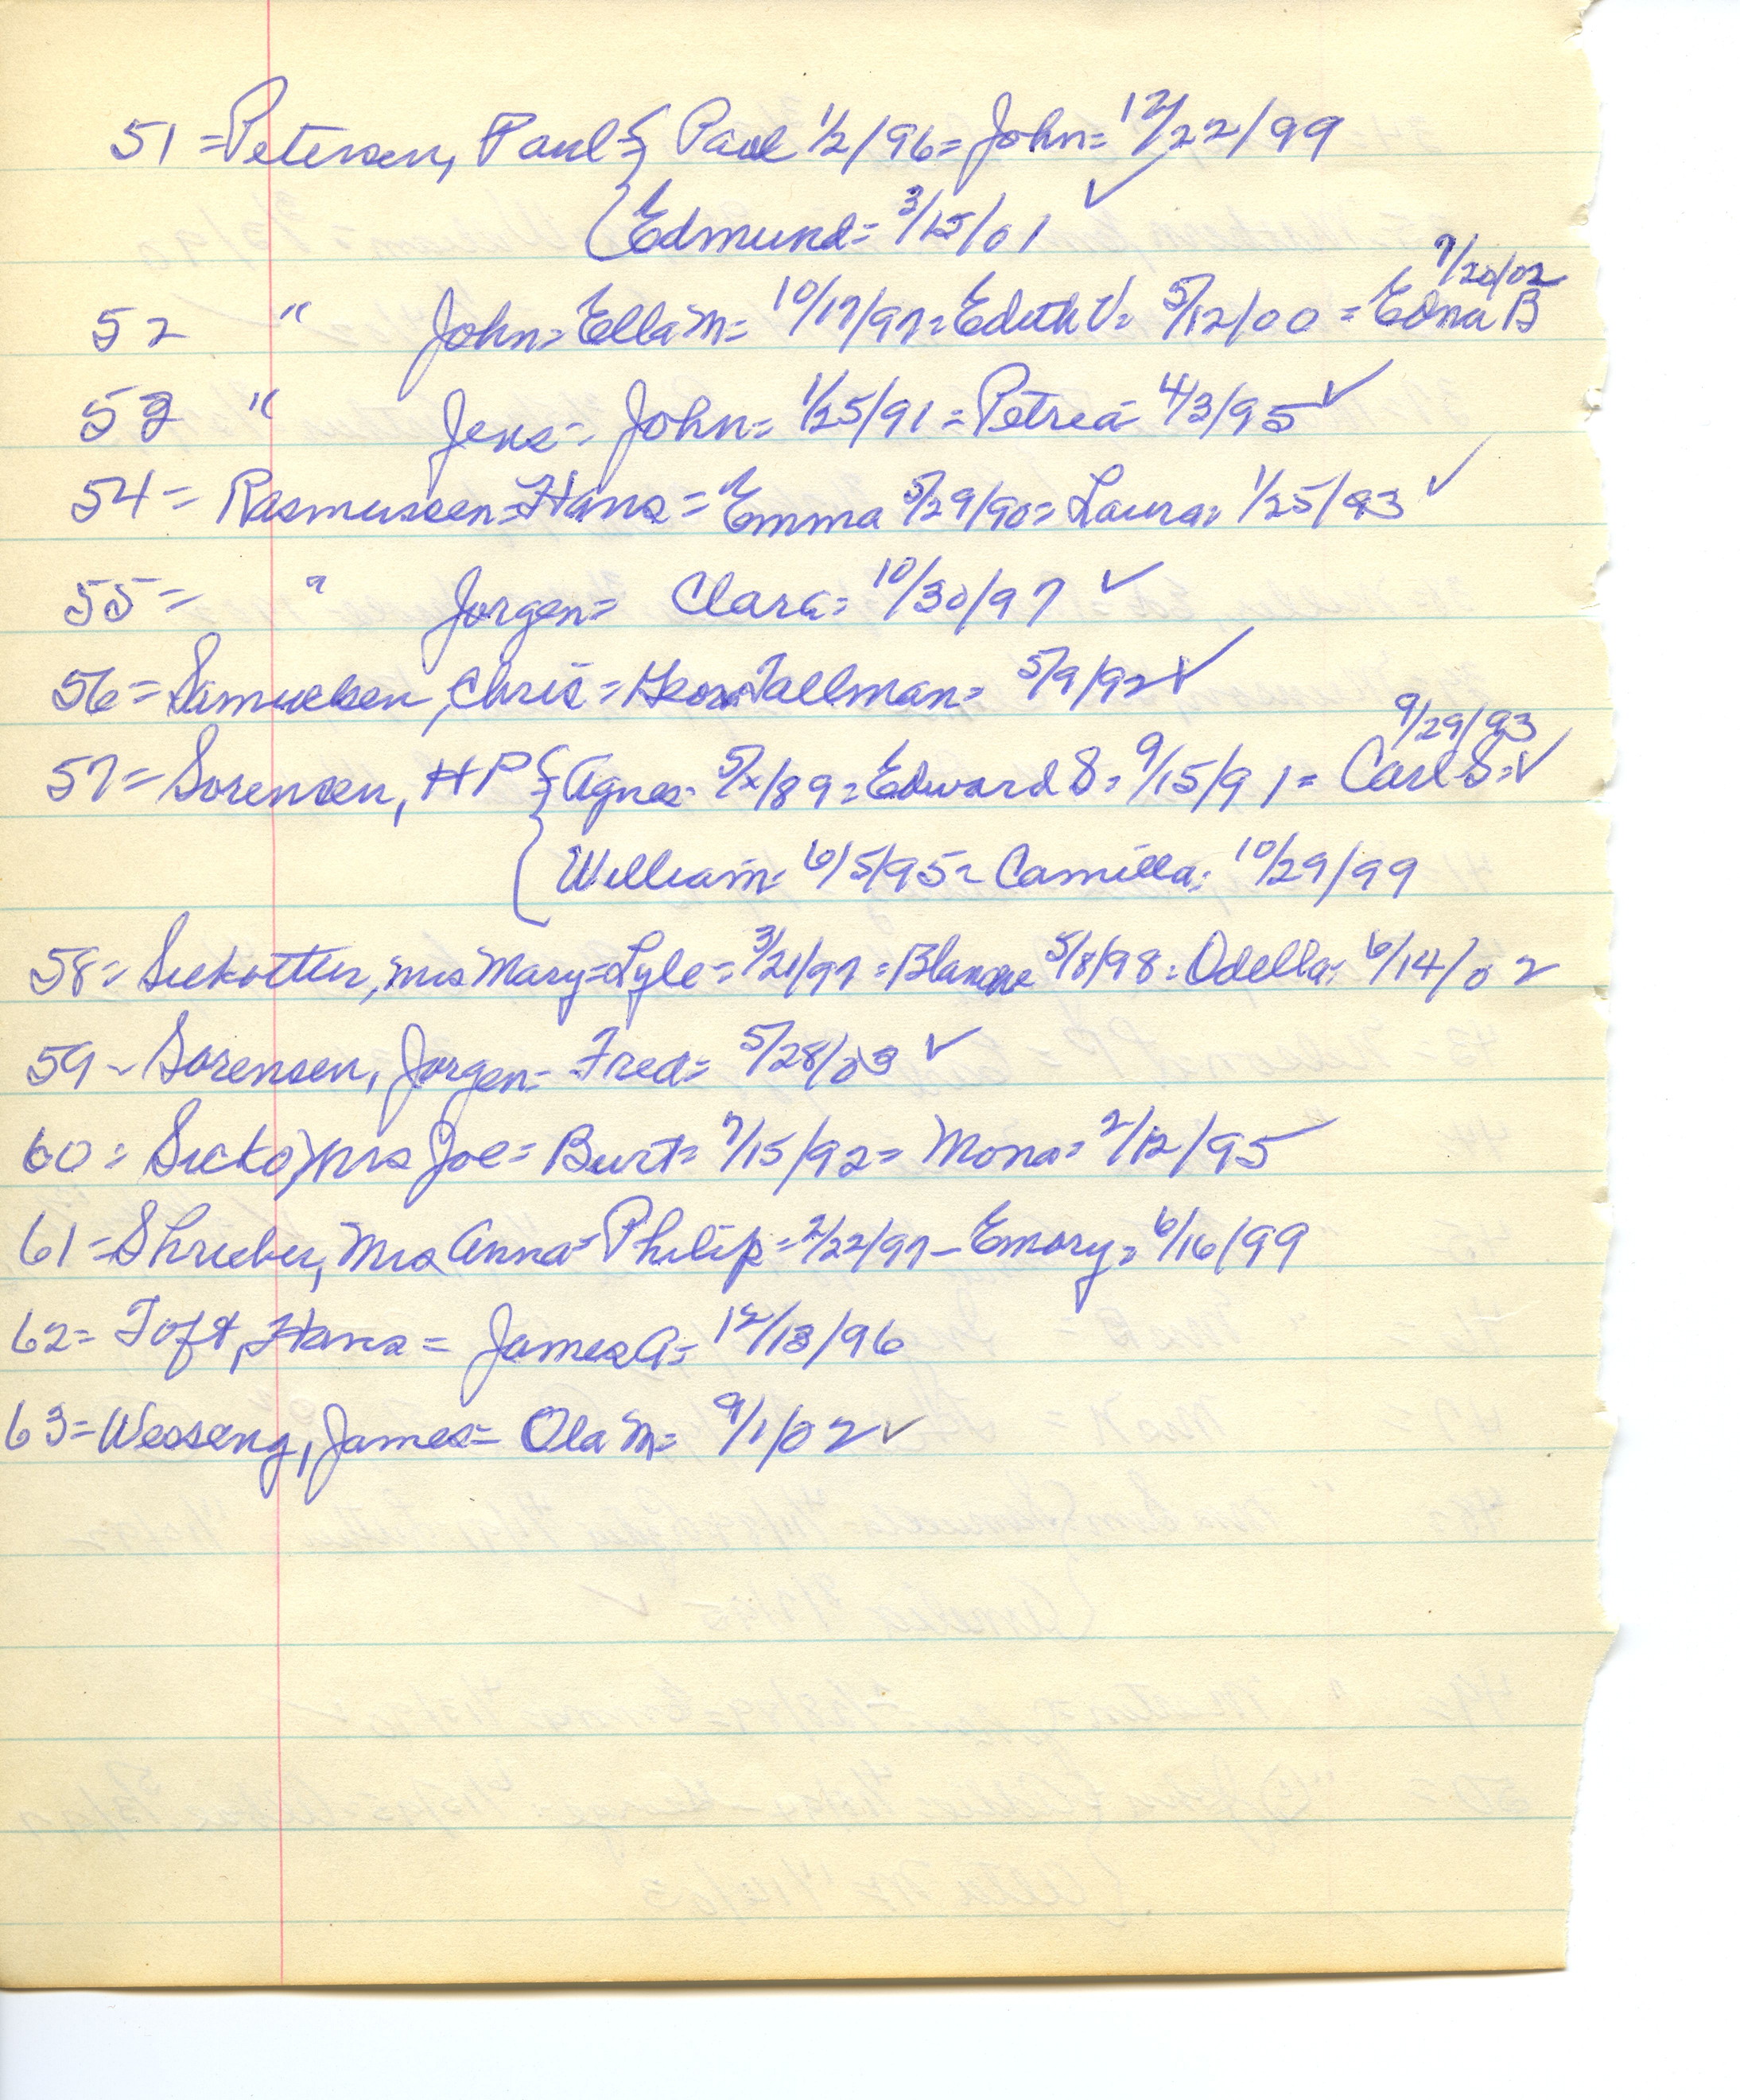 51 = Petersen, Paul = { Paul 1/2/96 = John = 12/22/99
{ Edmund = 3/15/01 ✓
7/20/02
52 " John = Ella M = 10/17/97 = Edith V = 5/12/00 = Edna B
53 " Jens - John = 1/25/91 = Petrea - 4/3/95 ✓
54 = Rasmussen = Hans = Emma 5/29/90 = Laura = 1/25/93 ✓
55 = " Jorgen = Clara = 10/30/97 ✓
56 = Samuelsen, Chris = Tallman = 5/9/92 ✓
9/29/93
57 = Sorensen, HP { Agnes - 5/x/89 = Edward S = 9/15/91 = Carl S = ✓
{ William = 6/5/95 = Camilla = 10/29/99
58 = Siekotter, Mrs Mary = Lyle = 3/21/97 = Blanche 5/8/98 = Odella = 6/14/02
59 - Sorensen, Jorgen = Fred = 5/28/03 ✓
60 = Mrs Joe = Burt = 7/15/92 = Mona = 2/12/95
61 = Shrieber, Mrs Anna = Philip = 2/22/97 - Emory = 6/16/99
62 = Toft, Hans = James A = 12/13/96
63 = Wesseng, James = Ola M = 9/1/02 ✓